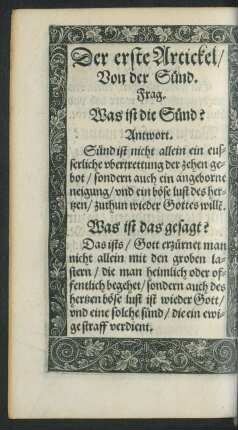 Der erste Artickel/
Von der Sünd.
Frag.
Was ist die Sünd?
Antwort.
Sünd ist nicht allein ein eus-
serliche vbertrettung der zehen ge-
bot/ sondern auch ein angeborne
neigung/ vnd ein böse lust des her-
tzen/ zuthun wieder Gottes will.
Was ist das gesagt?
Das ists/ Gott erzürnet man
nicht allein mit den groben la-
stern/ die man heimlich oder of-
fentlich begehet/ sondern auch des
hertzen böse lust ist wieder Gott/
vnd eine solche sünd/ die ein ewi-
ge straff verdient.